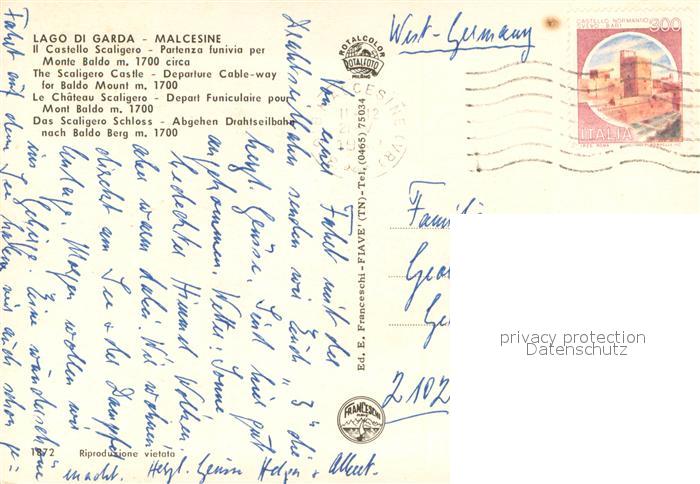 LAGO DI GARDA - MALCESINE
Il Castello Scaligero - Partenza funivia per
Monte Baldo m. 1700 circa
The Scaligero Castle - Departure Cable-way
for Baldo Mount m. 1700
Le Château Scaligero - Depart Funiculaire pour
Mont Baldo m. 1700
Das Scaligero Schloss - Abgehen Drahtseilbahn
nach Baldo Berg m. 1700
ROTALCOLOR
ROTALFOTO
MILANO
West-Germany
CASTELLO NORMANNO
SVEVO - BARI
300
ITALIA
MALCESINE (VR)
Von einer Fahrt mit der
Drahtseilbahn senden wir Euch "3" die
herzl. Grüsse. Sind hier gut
angekommen. Wetter: Sonne
bedeckter Himmel Wolken
aber warm dabei. Wir wohnen
direkt am See + der Dampfer
Morgen wollen wir
ins Gebirge. Eine wunderschöne
Fahrt auf dem See haben wir auch schon ge=
macht. Herzl. Grüsse Helga + Albert.
Ed. E. Franceschi - FIAVE' (TN) - Tel. (0465) 75034
Famili
Geo
Ge
2102
FRANCESCHI
FIAVE
1872 Riproduzione vietata
privacy protection
Datenschutz